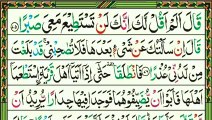 قَالَ اَلَمْ اَقُلْ لَّكَ اِنَّكَ لَنْ تَسْتَطِيْعَ مَعِىَ صَبْرًا
قَالَ اِنْ سَاَلْتُكَ عَنْ شَىْءٍۭ بَعْدَهَا فَلَا تُصٰحِبْنِىْ ۚ قَدْ بَلَغْتَ
مِنْ لَّدُنِّىْ عُذْرًا فَانْطَلَقَا ۥ حَتّٰۤى اِذَاۤ اَتَيَاۤ اَهْلَ قَرْيَةِ ۨاسْتَطْعَمَاۤ
اَهْلَهَا فَاَبَوْا اَنْ يُّضَيِّفُوْهُمَا فَوَجَدَا فِيْهَا جِدَارًا يُّرِيْدُ اَنْ